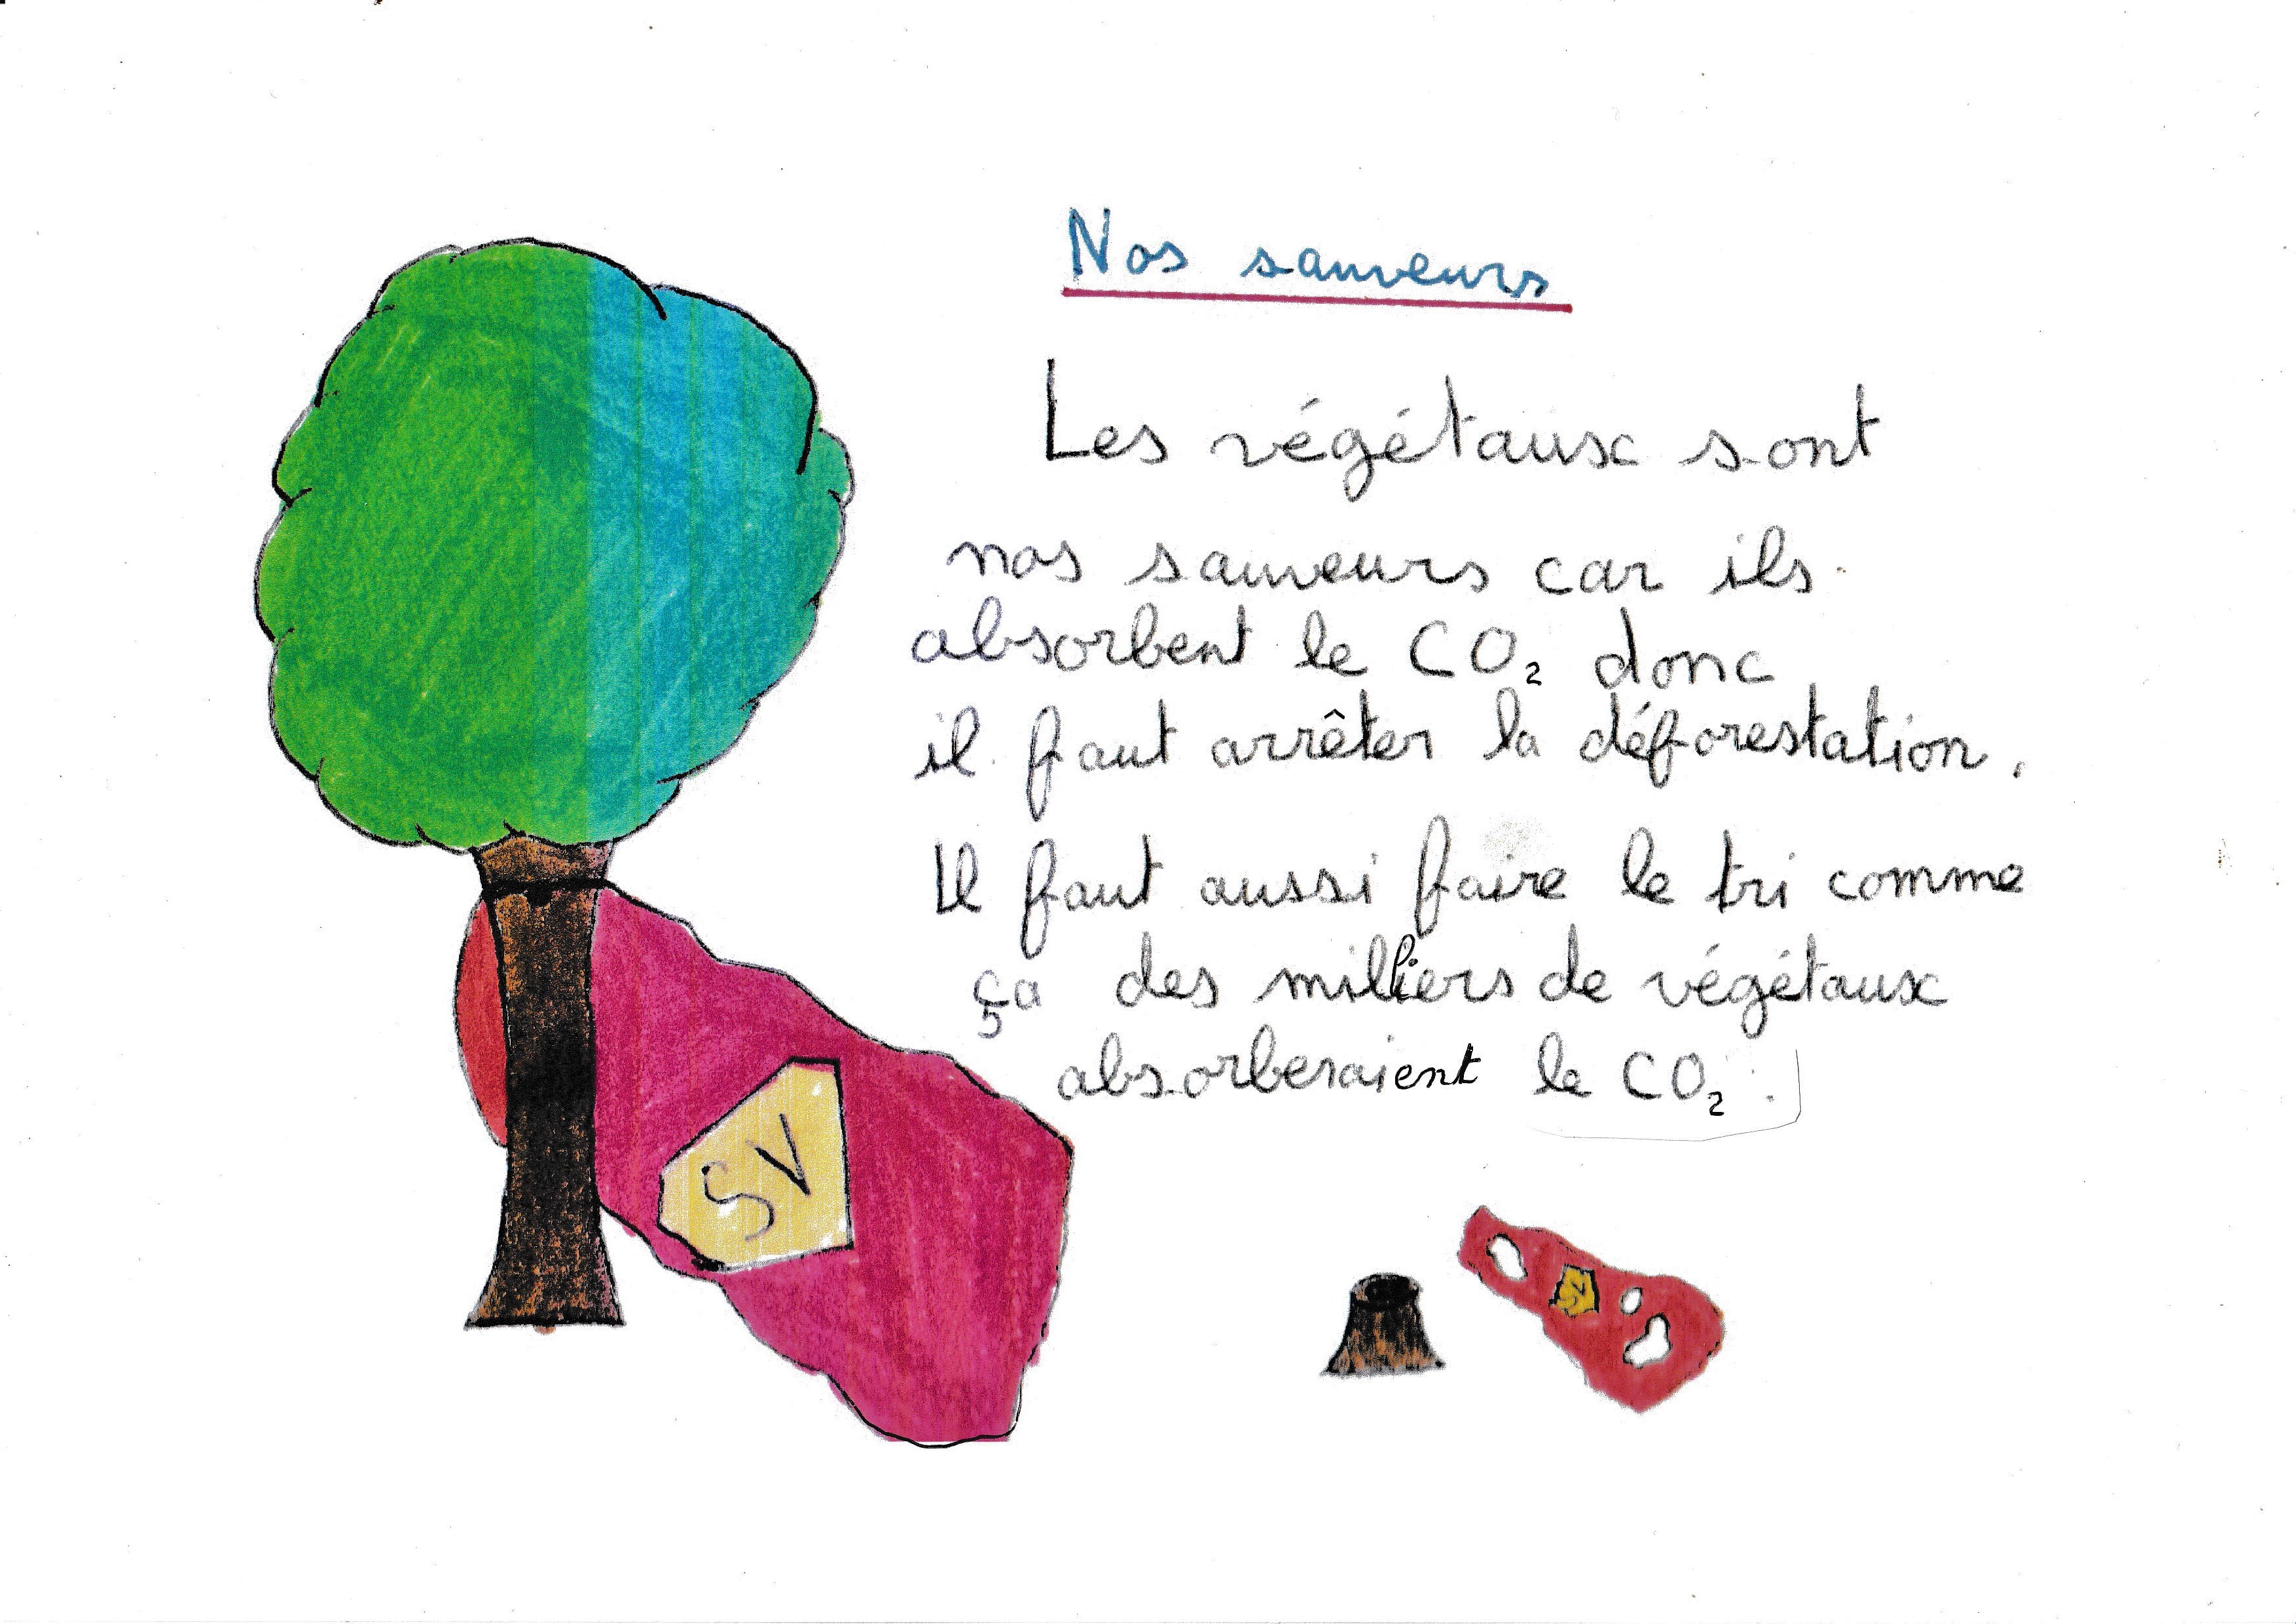 Nos sauveurs
Les végétaux sont
nos sauveurs car ils
absorbent le CO₂ donc
il faut arrêter la déforestation.
Il faut aussi faire le tri comme
ça des milliers de végétaux
absorberaient le CO₂.
SV
SV